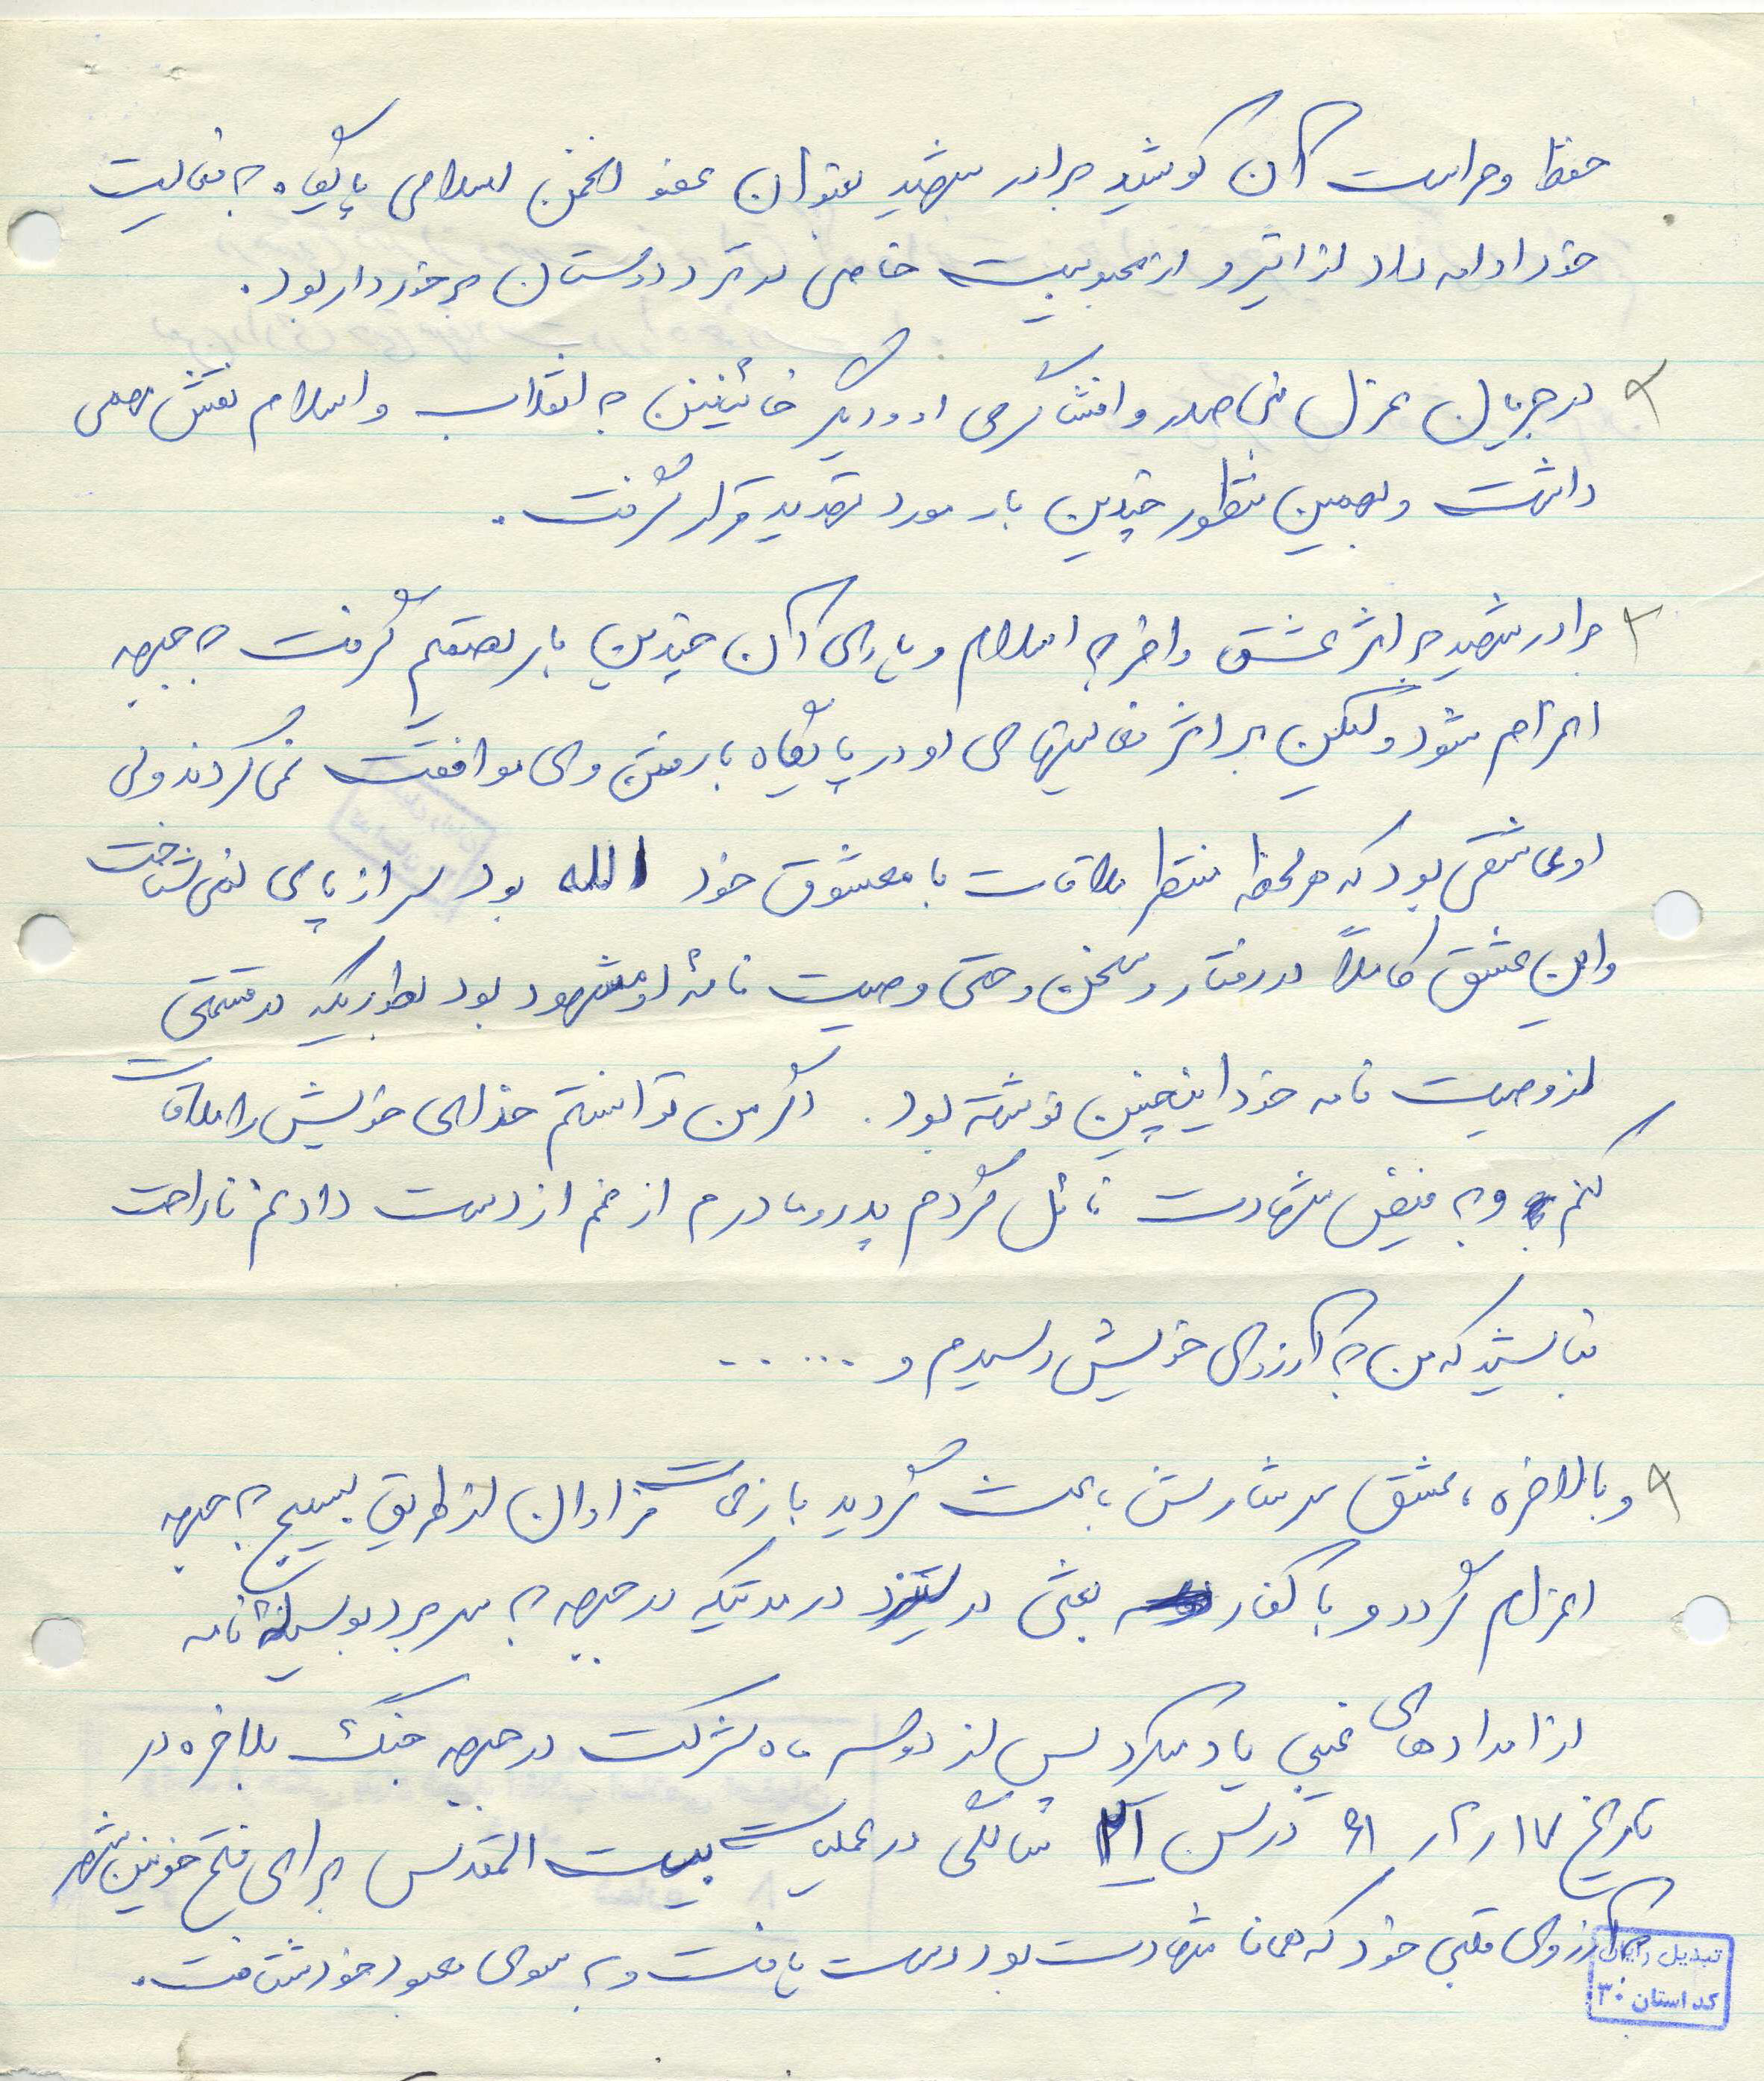 حفظ و حراست آن کوشید برادر شهید بعنوان عضو انجمن اسلامی پایگاه به فعالیت
خود ادامه داد لذا اینرو از محبوبیت خاصی در نزد دوستان برخوردار بود.
در جریان عزل بنی صدر و افشاگری او و دیگر خائنین به انقلاب و اسلام نقش مهمی
داشت و بهمین منظور چندین بار مورد تهدید قرار گرفت.
برادر شهید بر اثر عشق وافر به اسلام و یاری آن چندین بار تصمیم گرفت به جبهه
اعزام شود ولیکن بر اثر فعالیتهای او در پایگاه با رفتن وی موافقت نمی کردند ولی
او عاشقی بود که هر لحظه منتظر ملاقات با معشوق خود الله بود سر از پای نمی شناخت
و این عشق کاملاً در رفتار و سخن و حتی وصیت نامۀ او مشهود بود بطوریکه در قسمتی
از وصیت نامه خود اینچنین نوشته بود. اگر من توانستم خدای خویش را ملاقات
کنم و به فیض شهادت نائل گردم پدر و مادرم از غم از دست دادنم ناراحت
نباشید که من به آرزوی خویش رسیدم و .....
و بالاخره، عشق سرشارش باعث گردید با زحمات فراوان از طریق بسیج به جبهه
اعزام گردد و با کفار بعثی در ستیزد در مدتیکه در جبهه به سر برد بوسیلۀ نامه
از امدادهای غیبی یاد میکرد پس از دو سه ماه شرکت در جبهه جنگ بالاخره در
تاریخ ۱۷ر۲ر۶۱ در سن ۲۱ سالگی در عملیات بیت المقدس برای فتح خونین شهر
به آرزوی قلبی خود که همانا شهادت بود دست یافت و به سوی معبود خود شتافت.
تبدیل رایان
کد استان ۳۰